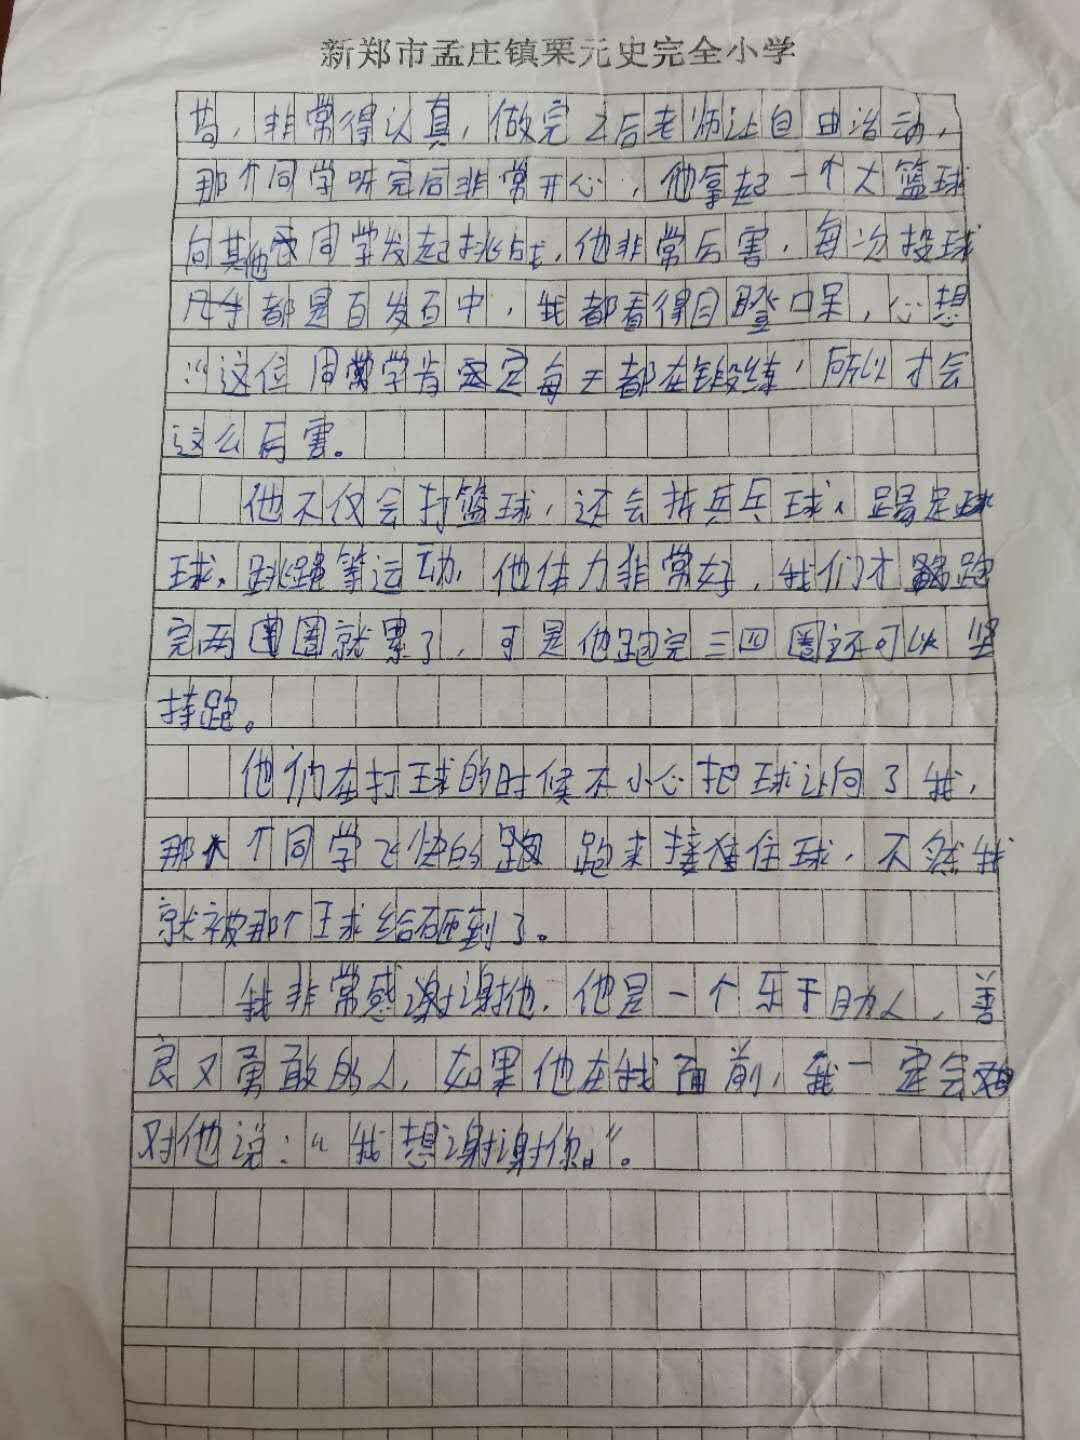 新郑市孟庄镇栗元史完全小学
着，非常得认真，做完之后老师让自由活动，
那个同学听完后非常开心，他拿起一个大篮球
向其他同学发起挑战，他非常厉害，每次投球
几乎都是百发百中，我都看得目瞪口呆，心想
“这位同学肯定每天都在锻练，所以才会
这么厉害。
他不仅会打篮球，还会打乒乓球、踢足球
球、跳绳等运动，他体力非常好，我们才跑
完两圈就累了，可是他跑完三四圈还可以坚
持跑。
他们在打球的时候不小心把球让向了我，
那个同学飞快的跑来接住球，不然我
就被那个球给砸到了。
我非常感谢谢他，他是一个乐于助人，善
良又勇敢的人，如果他在我面前，我一定会
对他说：“我想谢谢你。”。